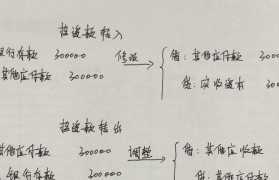 投资款转入
银行存款 300000
其他应付款 300000
修改
借:其他应付款 300
贷:实收资本 300
投资款转出
其他应付款 300000
银行存款 300000
调整
借:其他应收款
贷:其他应付款